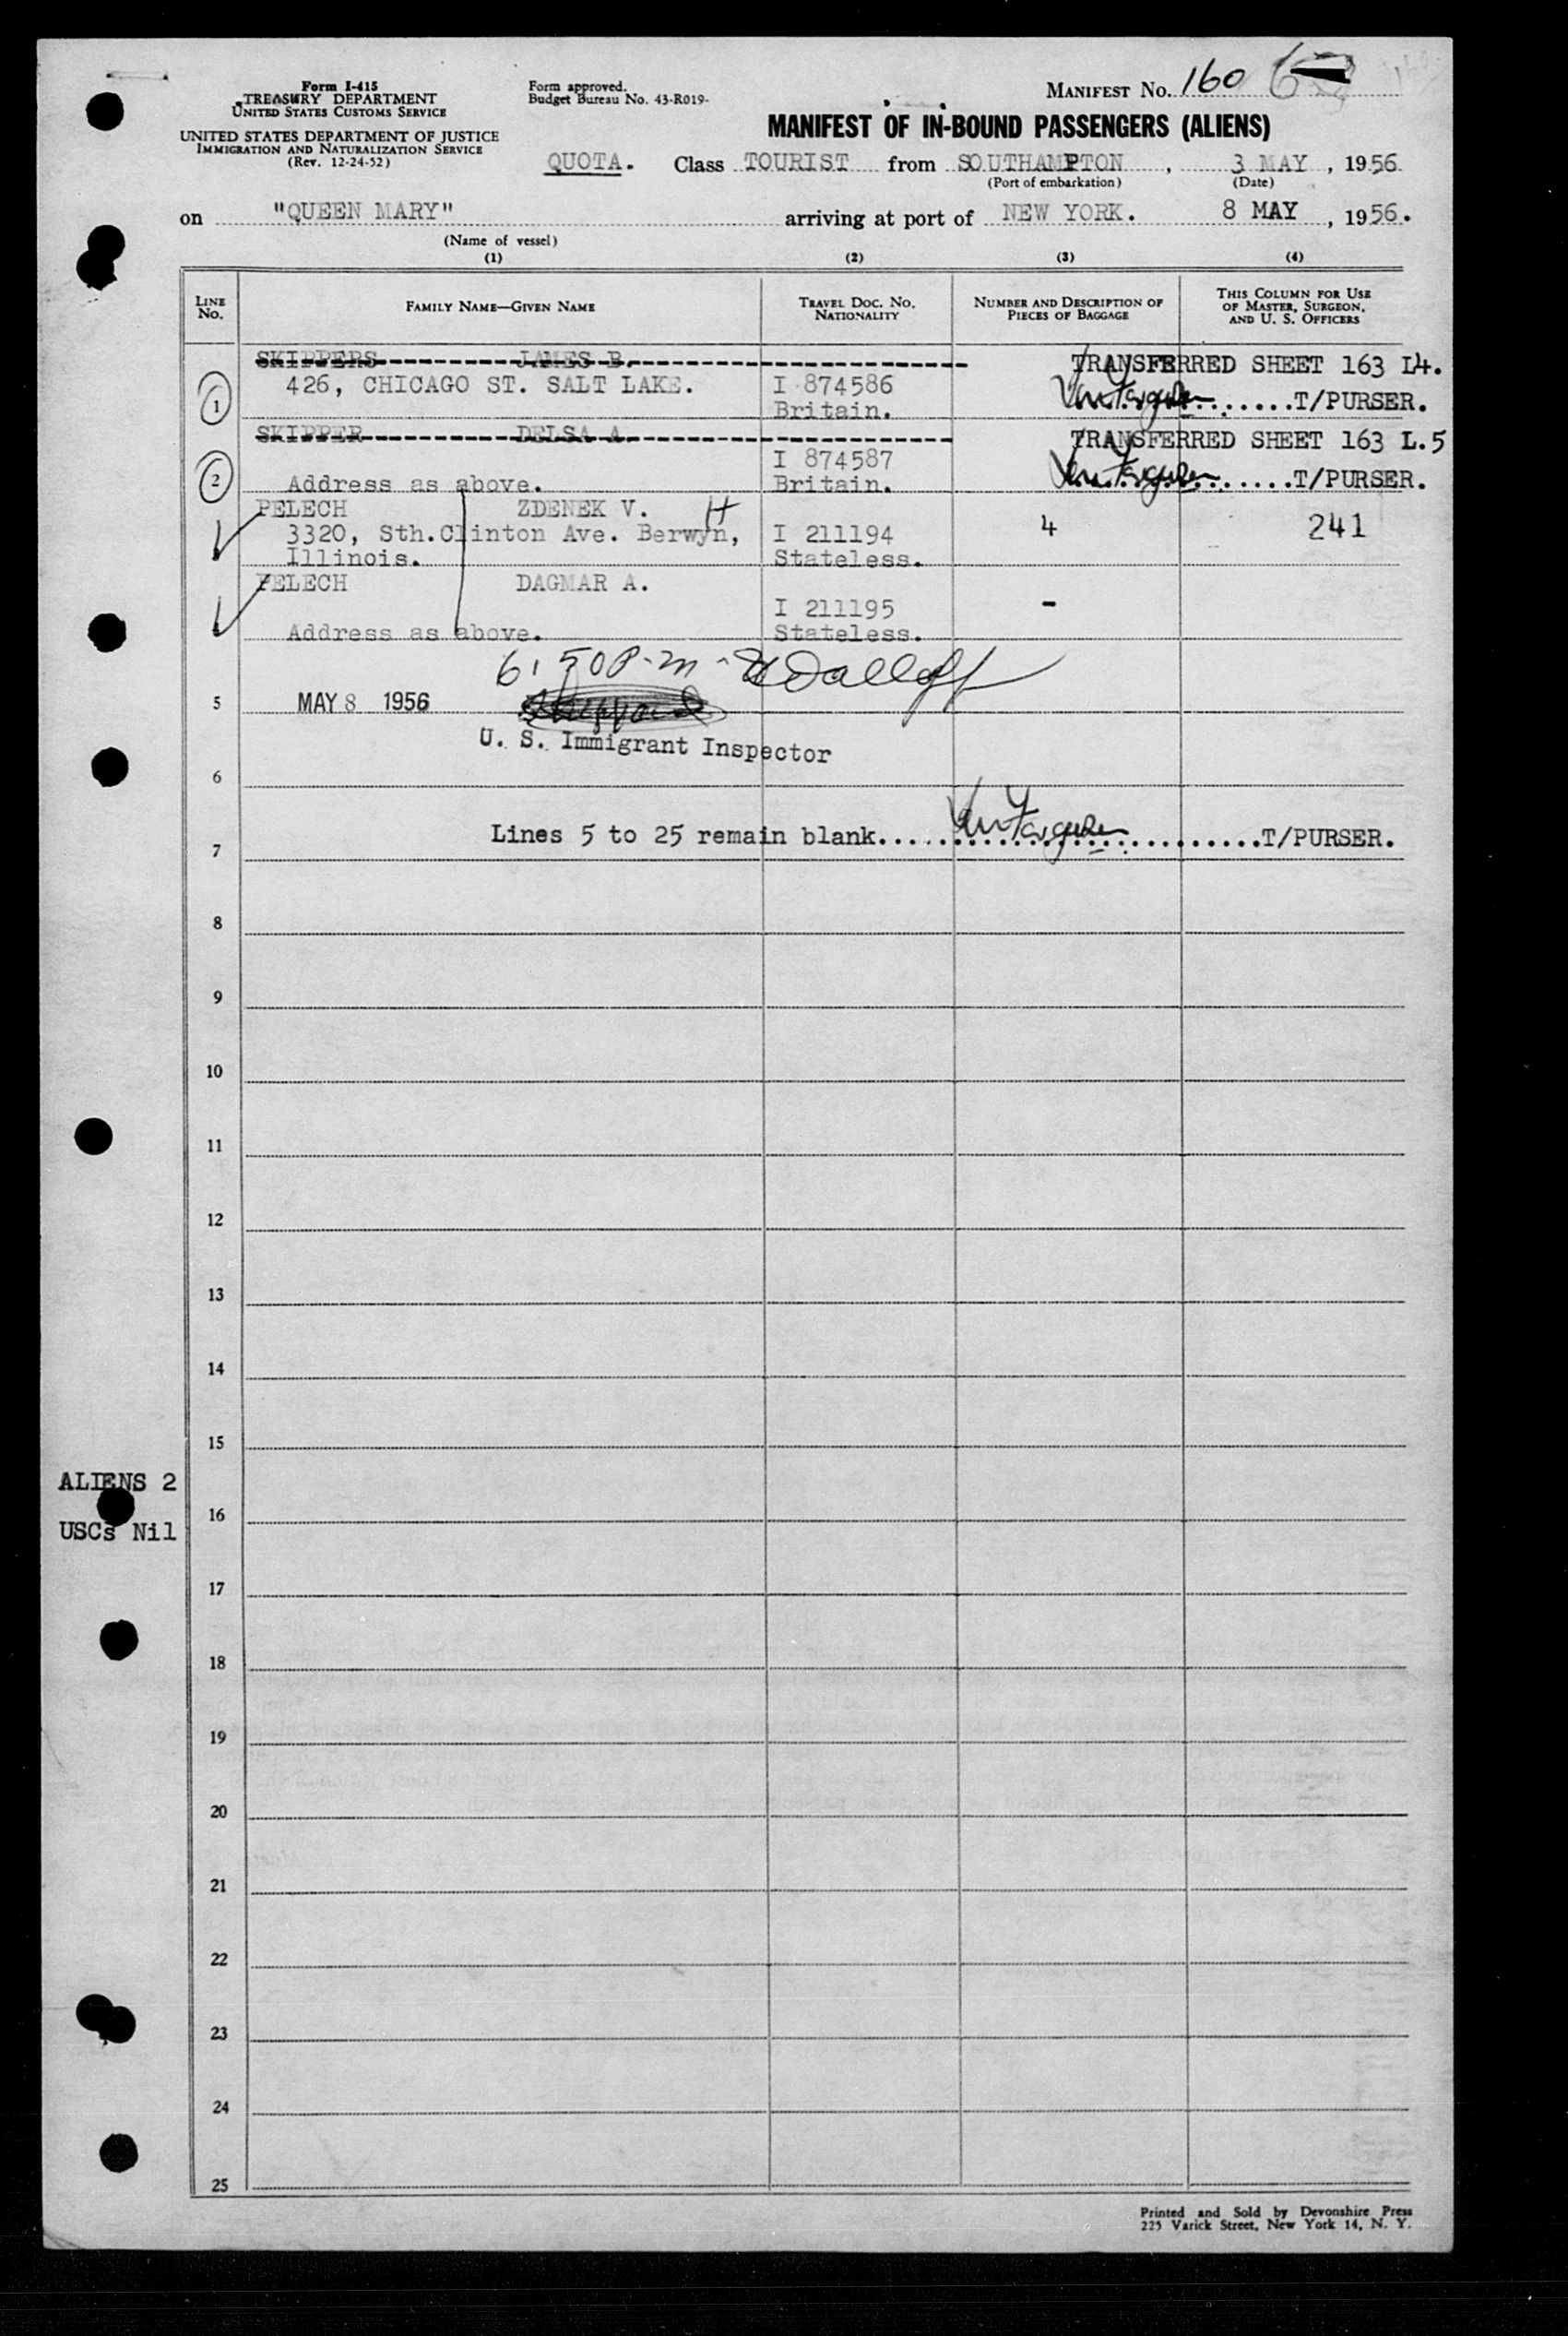 Form I-415
TREASURY DEPARTMENT
UNITED STATES CUSTOMS SERVICE
UNITED STATES DEPARTMENT OF JUSTICE
IMMIGRATION AND NATURALIZATION SERVICE
(Rev. 12-24-52)
Form approved.
Budget Bureau No. 43-R019-
MANIFEST No. 160
MANIFEST OF IN-BOUND PASSENGERS (ALIENS)
QUOTA. Class TOURIST from SOUTHAMPTON, 3 MAY, 1956
(Port of embarkation) (Date)
on "QUEEN MARY" arriving at port of NEW YORK. 8 MAY, 1956.
(Name of vessel)
(1) (2) (3) (4)
LINE No. FAMILY NAME—GIVEN NAME TRAVEL DOC. NO. NATIONALITY NUMBER AND DESCRIPTION OF PIECES OF BAGGAGE THIS COLUMN FOR USE OF MASTER, SURGEON, AND U. S. OFFICERS
SKIPPERS JAMES B. TRANSFERRED SHEET 163 L4.
426, CHICAGO ST. SALT LAKE. I 874586
1 Britain. .......T/PURSER.
SKIPPER DELSA A. TRANSFERRED SHEET 163 L.5
I 874587
2 Address as above. Britain. .......T/PURSER.
PELECH ZDENEK V. H
3320, Sth.Clinton Ave. Berwyn, I 211194 4 241
Illinois. Stateless.
PELECH DAGMAR A.
I 211195 -
Address as above. Stateless.
6:50 P.m.
5 MAY 8 1956
U. S. Immigrant Inspector
6
Lines 5 to 25 remain blank..........................T/PURSER.
7
8
9
10
11
12
13
14
15
ALIENS 2
16
USCs Nil
17
18
19
20
21
22
23
24
25
Printed and Sold by Devonshire Press
225 Varick Street, New York 14, N. Y.